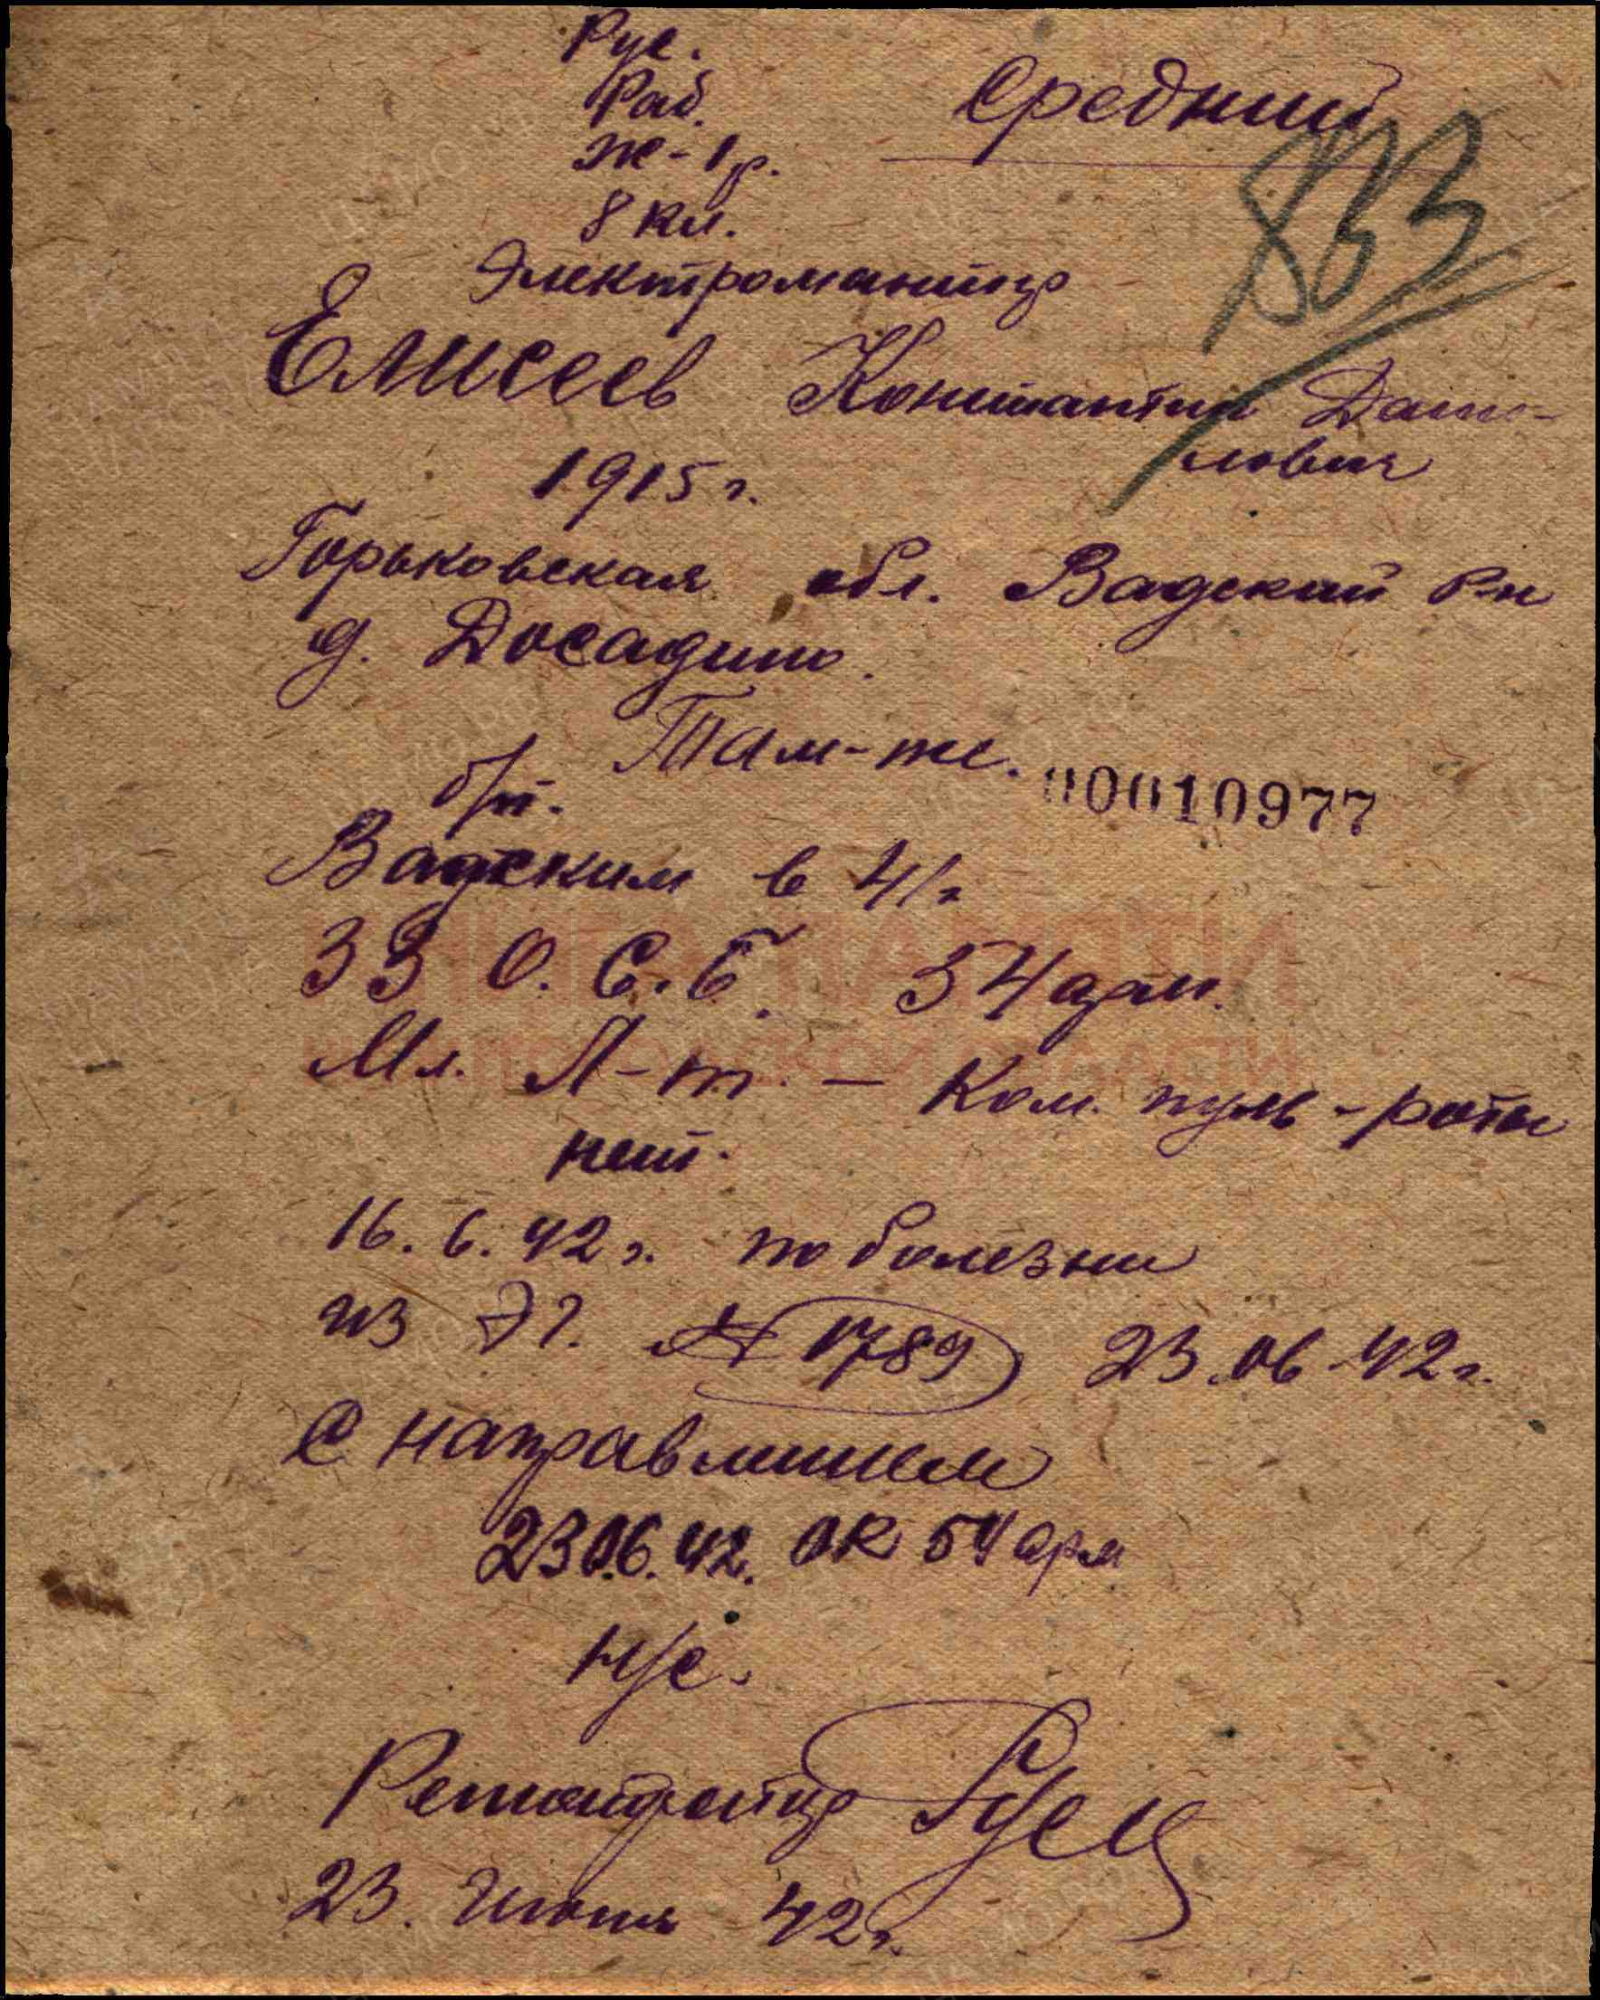 Рус.
Раб.
Средний
ж-1р.
8 кл.
Электромонтер
Елисеев Константин Дани-
лович
1915 г.
Горьковская обл. Вадский р-н
д. Досадино.
Там-же.
б/п.
00010977
Вадским в 41 г
33 О.С.Б. 54 арм.
Мл. Л-т. - Ком. пуль-роты
нет.
16.6.42 г. по болезни
из ЭГ. № 1789 23.06.42 г.
С направлением
23.06.42. ОК 54 арм
н/с.
Регистратор
23. Июня 42 г.
КНИГА ПАМЯТИ
НИЖЕГОРОДСКОЙ ОБЛАСТИ